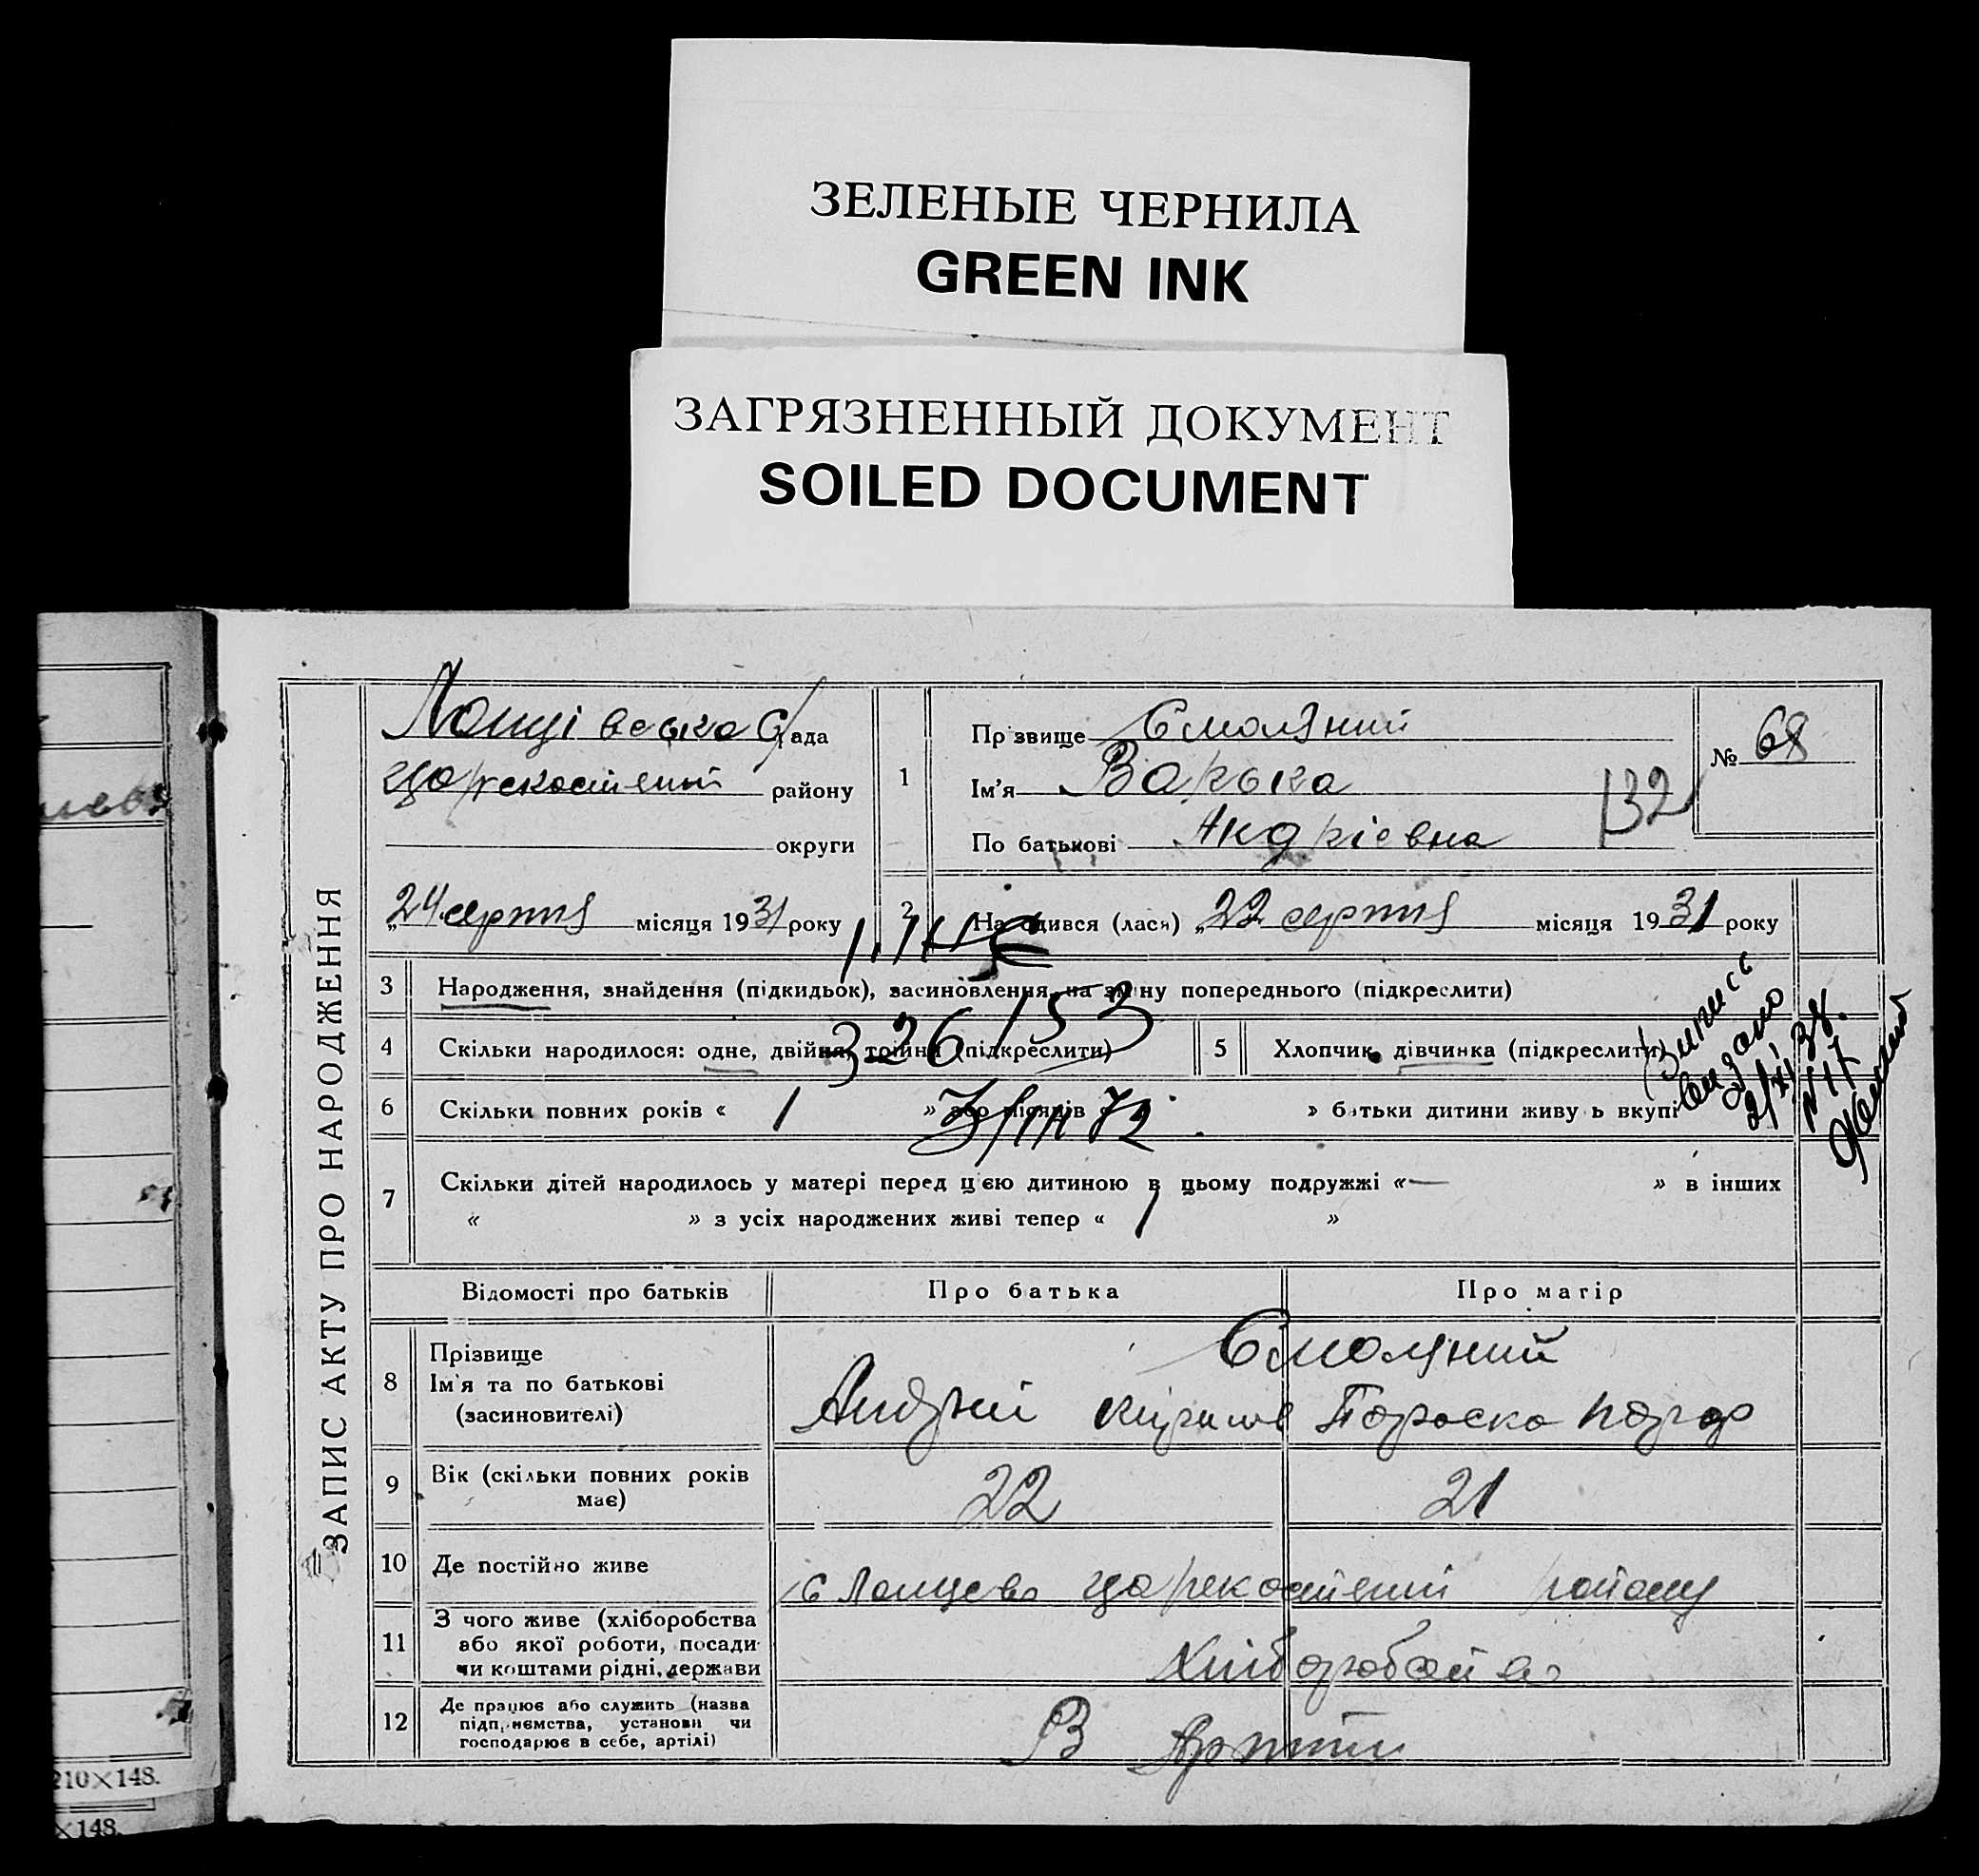 ЗЕЛЕНЫЕ ЧЕРНИЛА
GREEN INK
ЗАГРЯЗНЕННЫЙ ДОКУМЕНТ
SOILED DOCUMENT
ЗАПИС АКТУ ПРО НАРОДЖЕННЯ
ада
району
округи
„24 серпня місяця 1931 року
1
Прізвище Смоляний
Ім'я Варька
По батькові Андрієвна
№ 68
132
2 Народився (лася) „22 серпня місяця 1931 року
3 Народження, знайдення (підкидьок), засиновлення, на зміну попереднього (підкреслити)
4 Скільки народилося: одне, двійня, трійня (підкреслити)
326153
5 Хлопчик, дівчинка (підкреслити)
6 Скільки повних років « 1 » або місяців « » батьки дитини живуть вкупі
7 Скільки дітей народилось у матері перед цією дитиною в цьому подружжі «— » в інших
« » з усіх народжених живі тепер « 1 »
Відомості про батьків
Про батька
Про матір
8 Прізвище
Ім'я та по батькові
(засиновителі)
Смоляний
Андрій Кирилов Параска
9 Вік (скільки повних років
має)
22
21
10 Де постійно живе
с
11 З чого живе (хліборобства
або якої роботи, посади
чи коштами рідні, держави
12 Де працює або служить (назва
підприємства, установи чи
господарює в себе, артілі)
В Артіли
210×148.
×148.